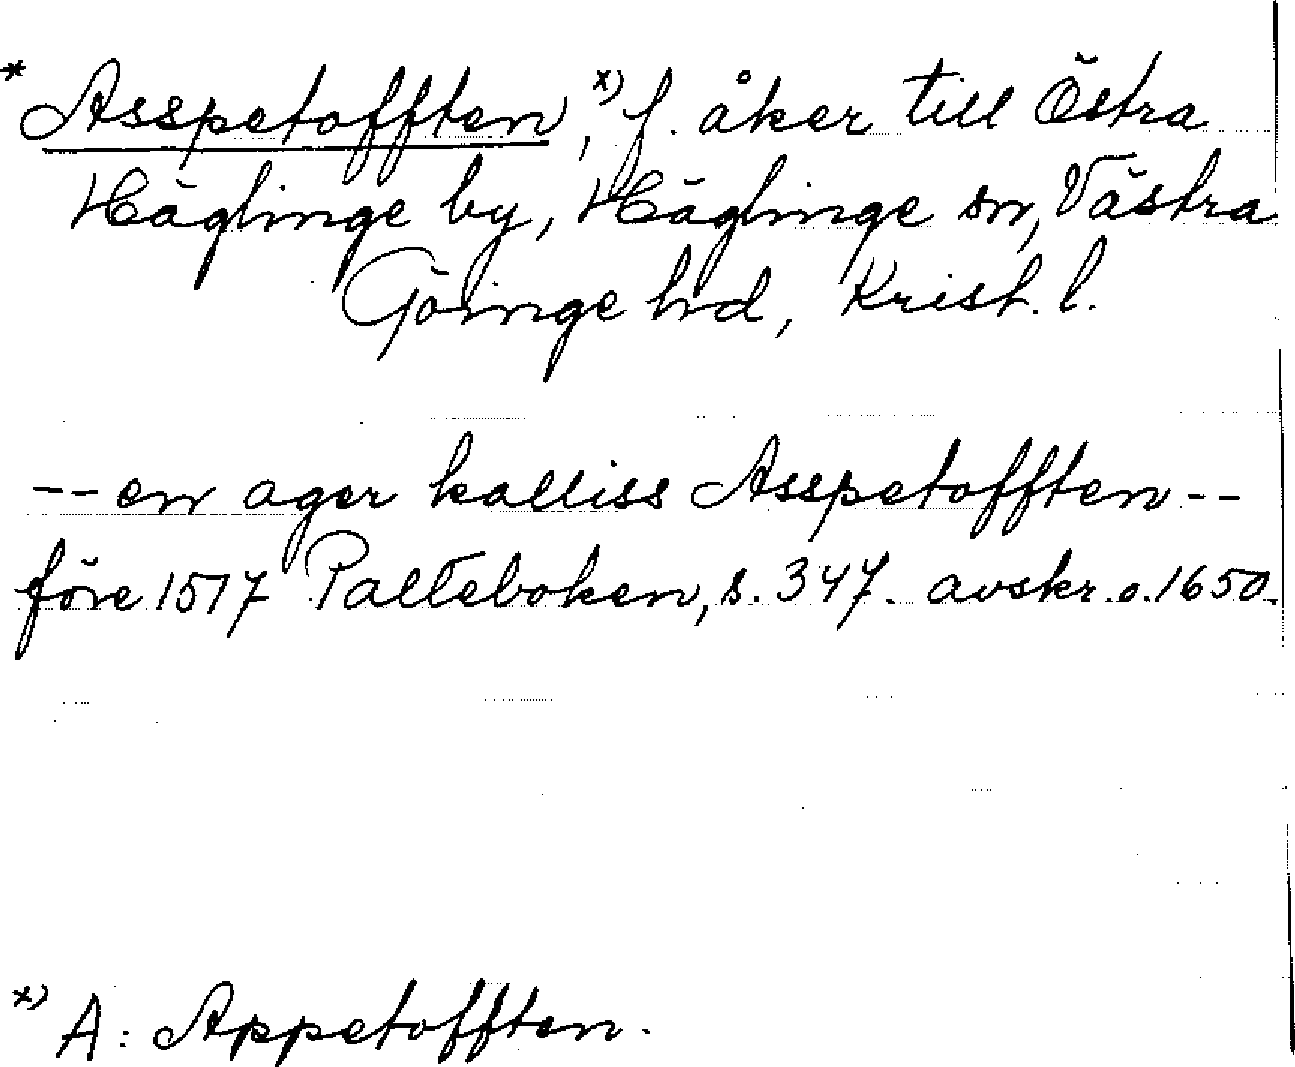 * Asspetofften,x) f. åker till Östra
Häglinge by, Häglinge sn, Västra
Göinge hd, Krist. l.
-- en ager kalliss Asspetofften --
före 1517 Palteboken, s. 347. avskr. o. 1650.
x) A: Appetofften.